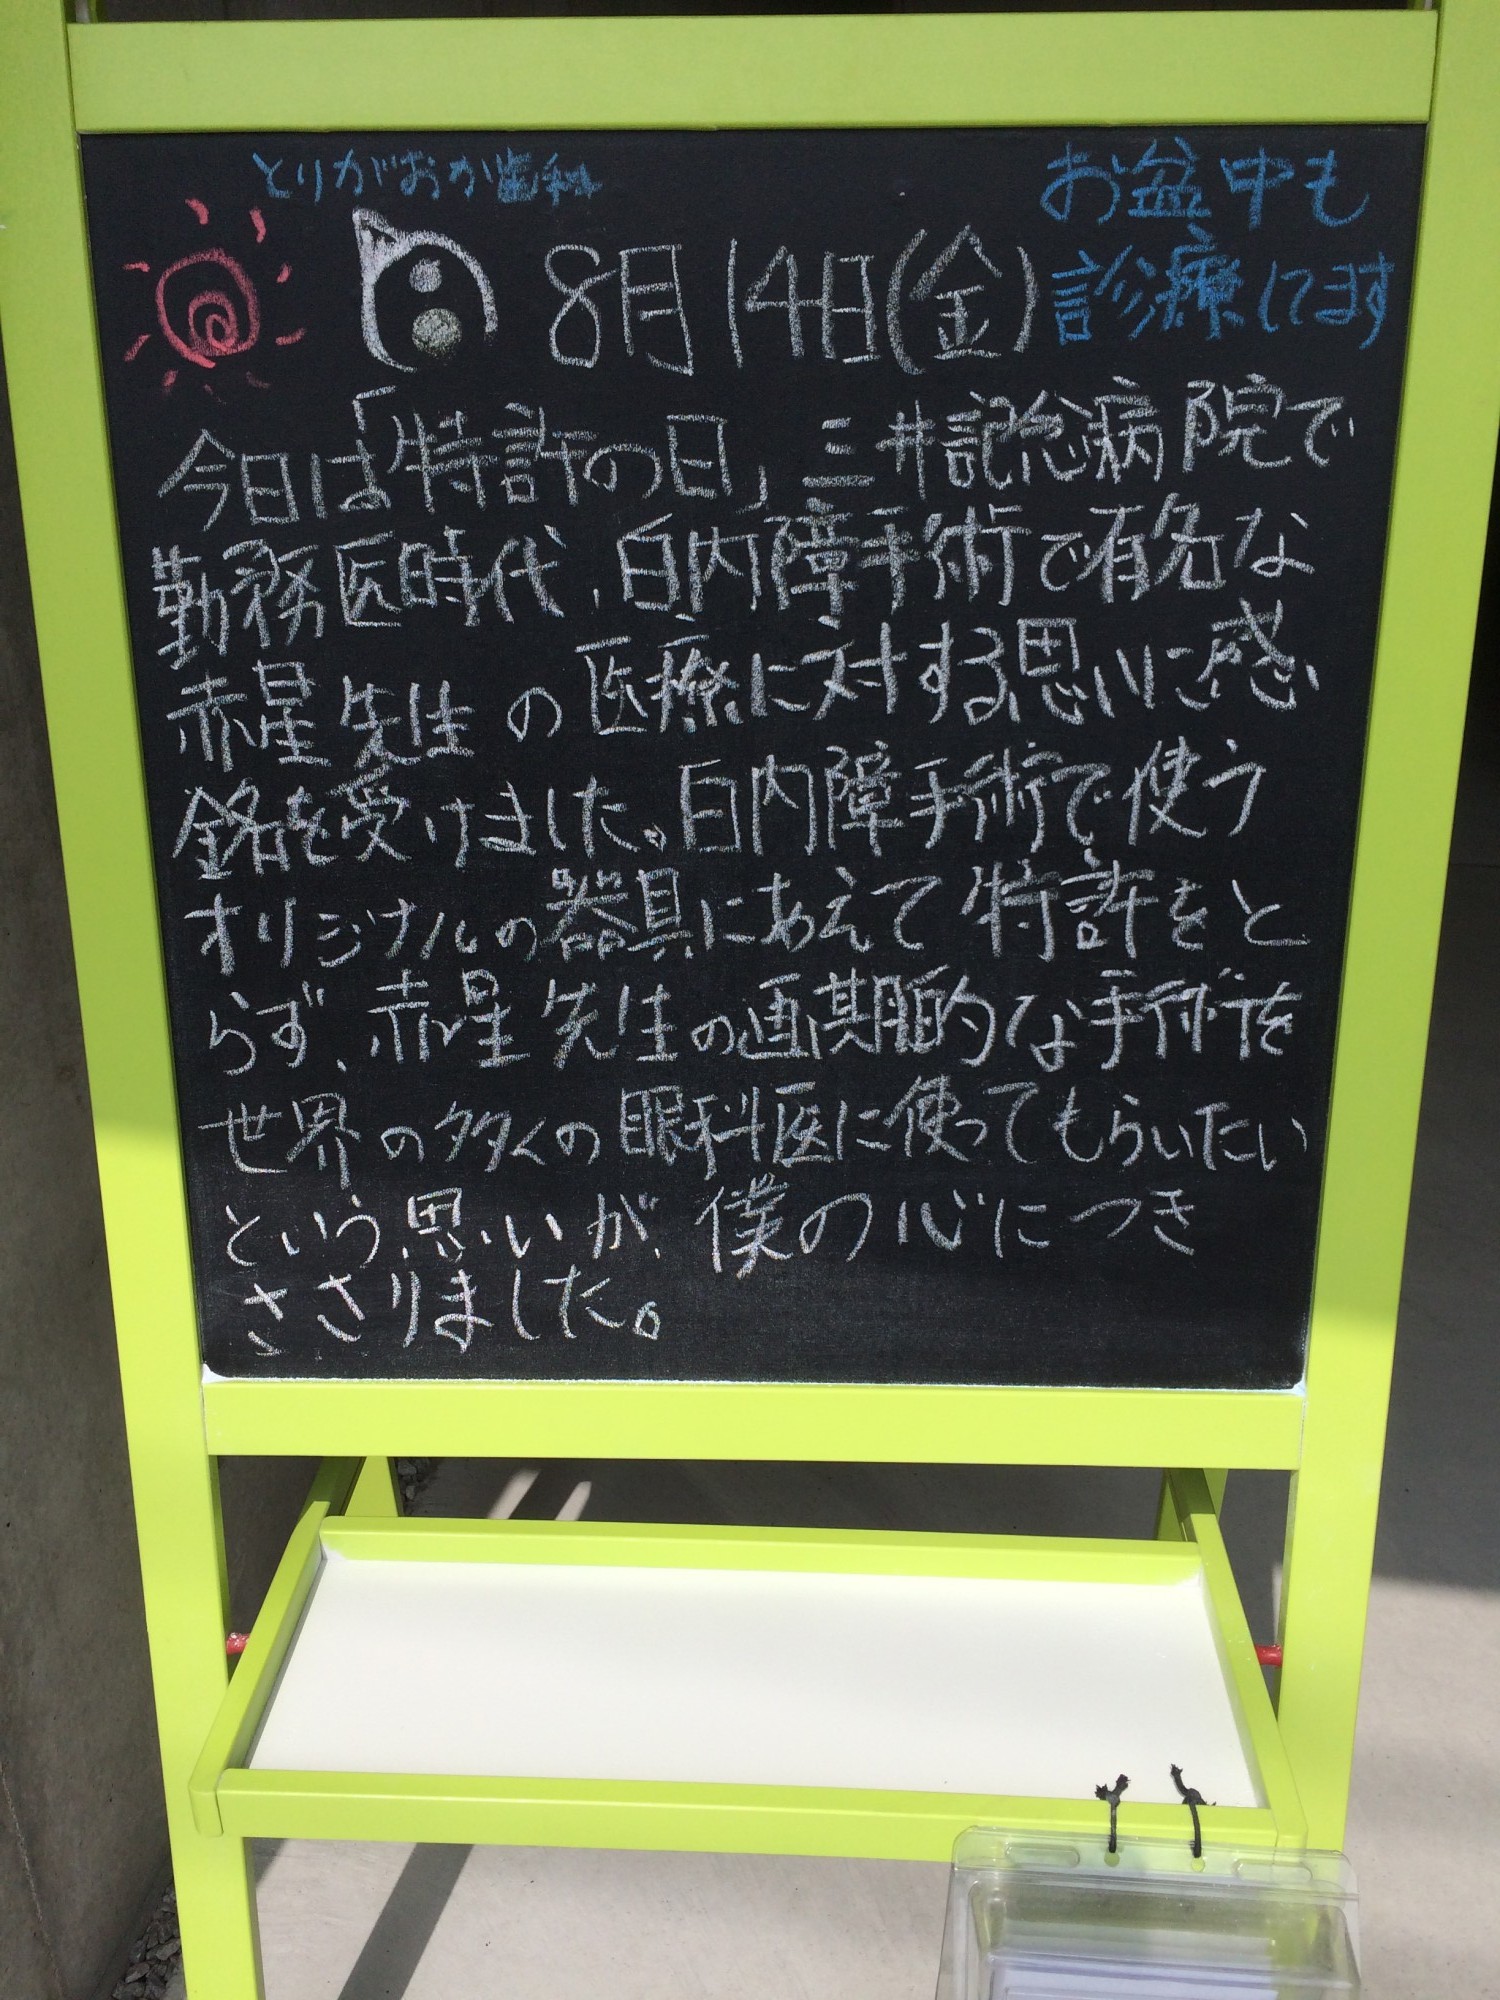 とりがおか歯科
お盆中も
診療してます
8月14日(金)
今日は「特許の日」三井記念病院で
勤務医時代、白内障手術で有名な
赤星先生の医療に対する思いに感
銘を受けました。白内障手術で使う
オリジナルの器具にあえて特許をと
らず、赤星先生の画期的な手術を
世界の多くの眼科医に使ってもらいたい
という思いが、僕の心につき
ささりました。